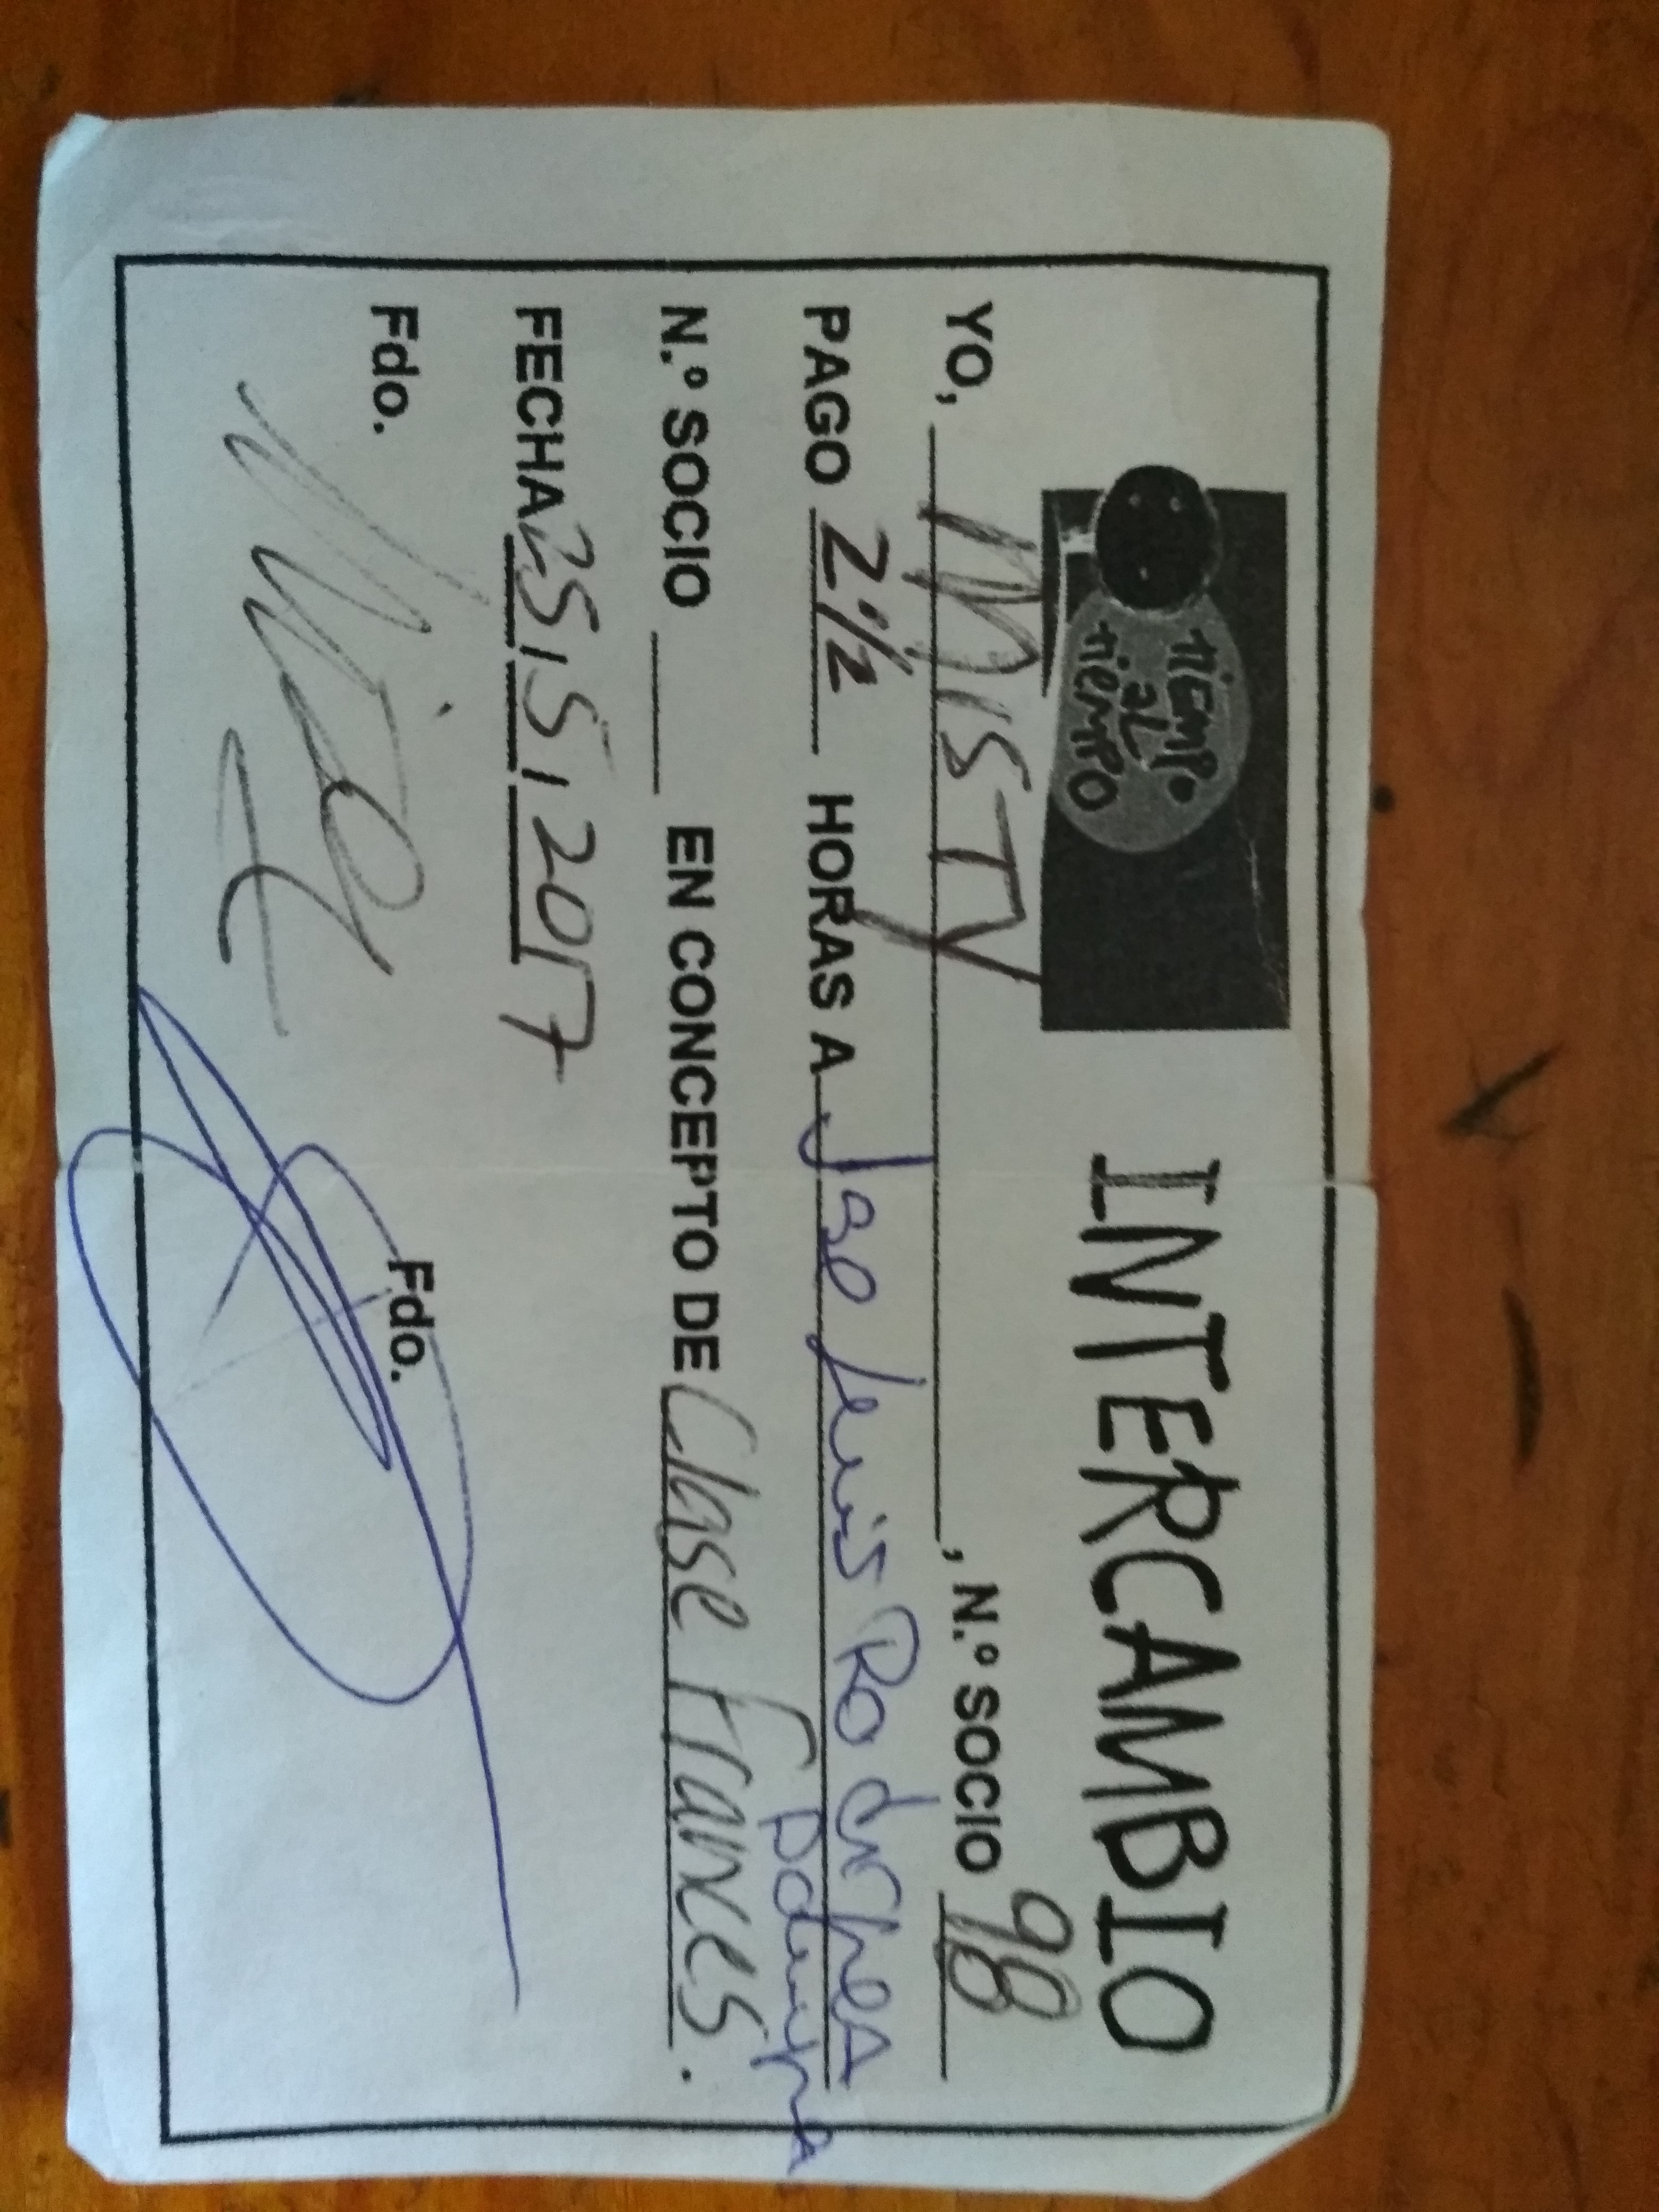 tiEMPo
aL
tieMPO
INTERCAMBIO
YO, MISTY, N.º SOCIO 98
PAGO 2 1/2 HORAS A Jose Luis Rodriguez
N.º SOCIO ____ EN CONCEPTO DE Clase Frances.
FECHA 25/5/2017
Fdo. Fdo.